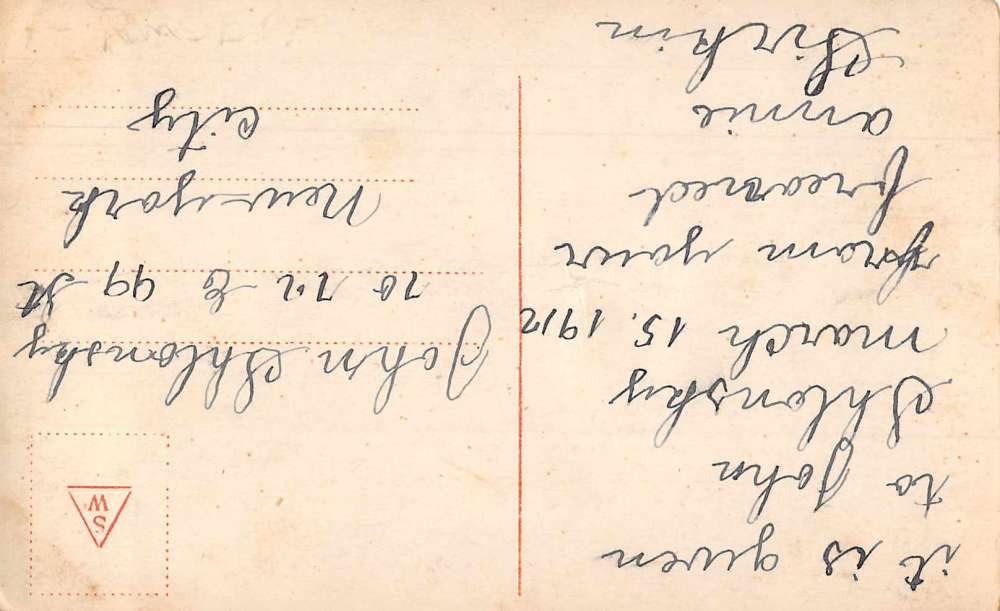 it is given
to John
Shlonsky
march 15, 1912
fram your
freaned
annie
Sirkin
S
W
John Shlonsky
to 72 E 99 St
New-york
City